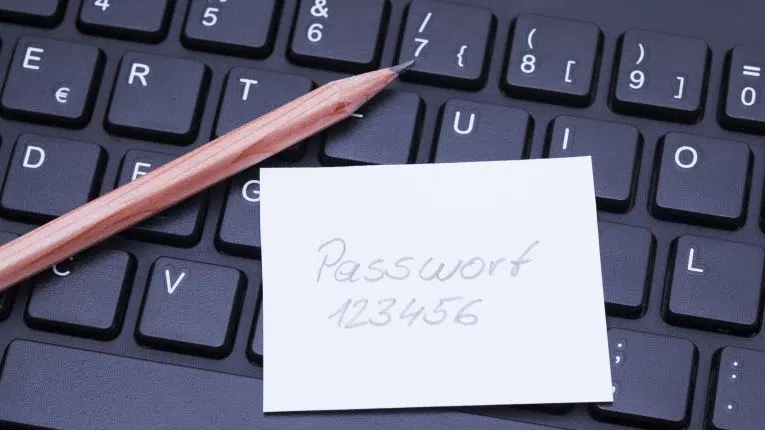 4 5 & 6 / 7 { ( 8 [ ) 9 ] = 0
E € R T U I O
D F G L
C V ; , : .
Passwort
123456